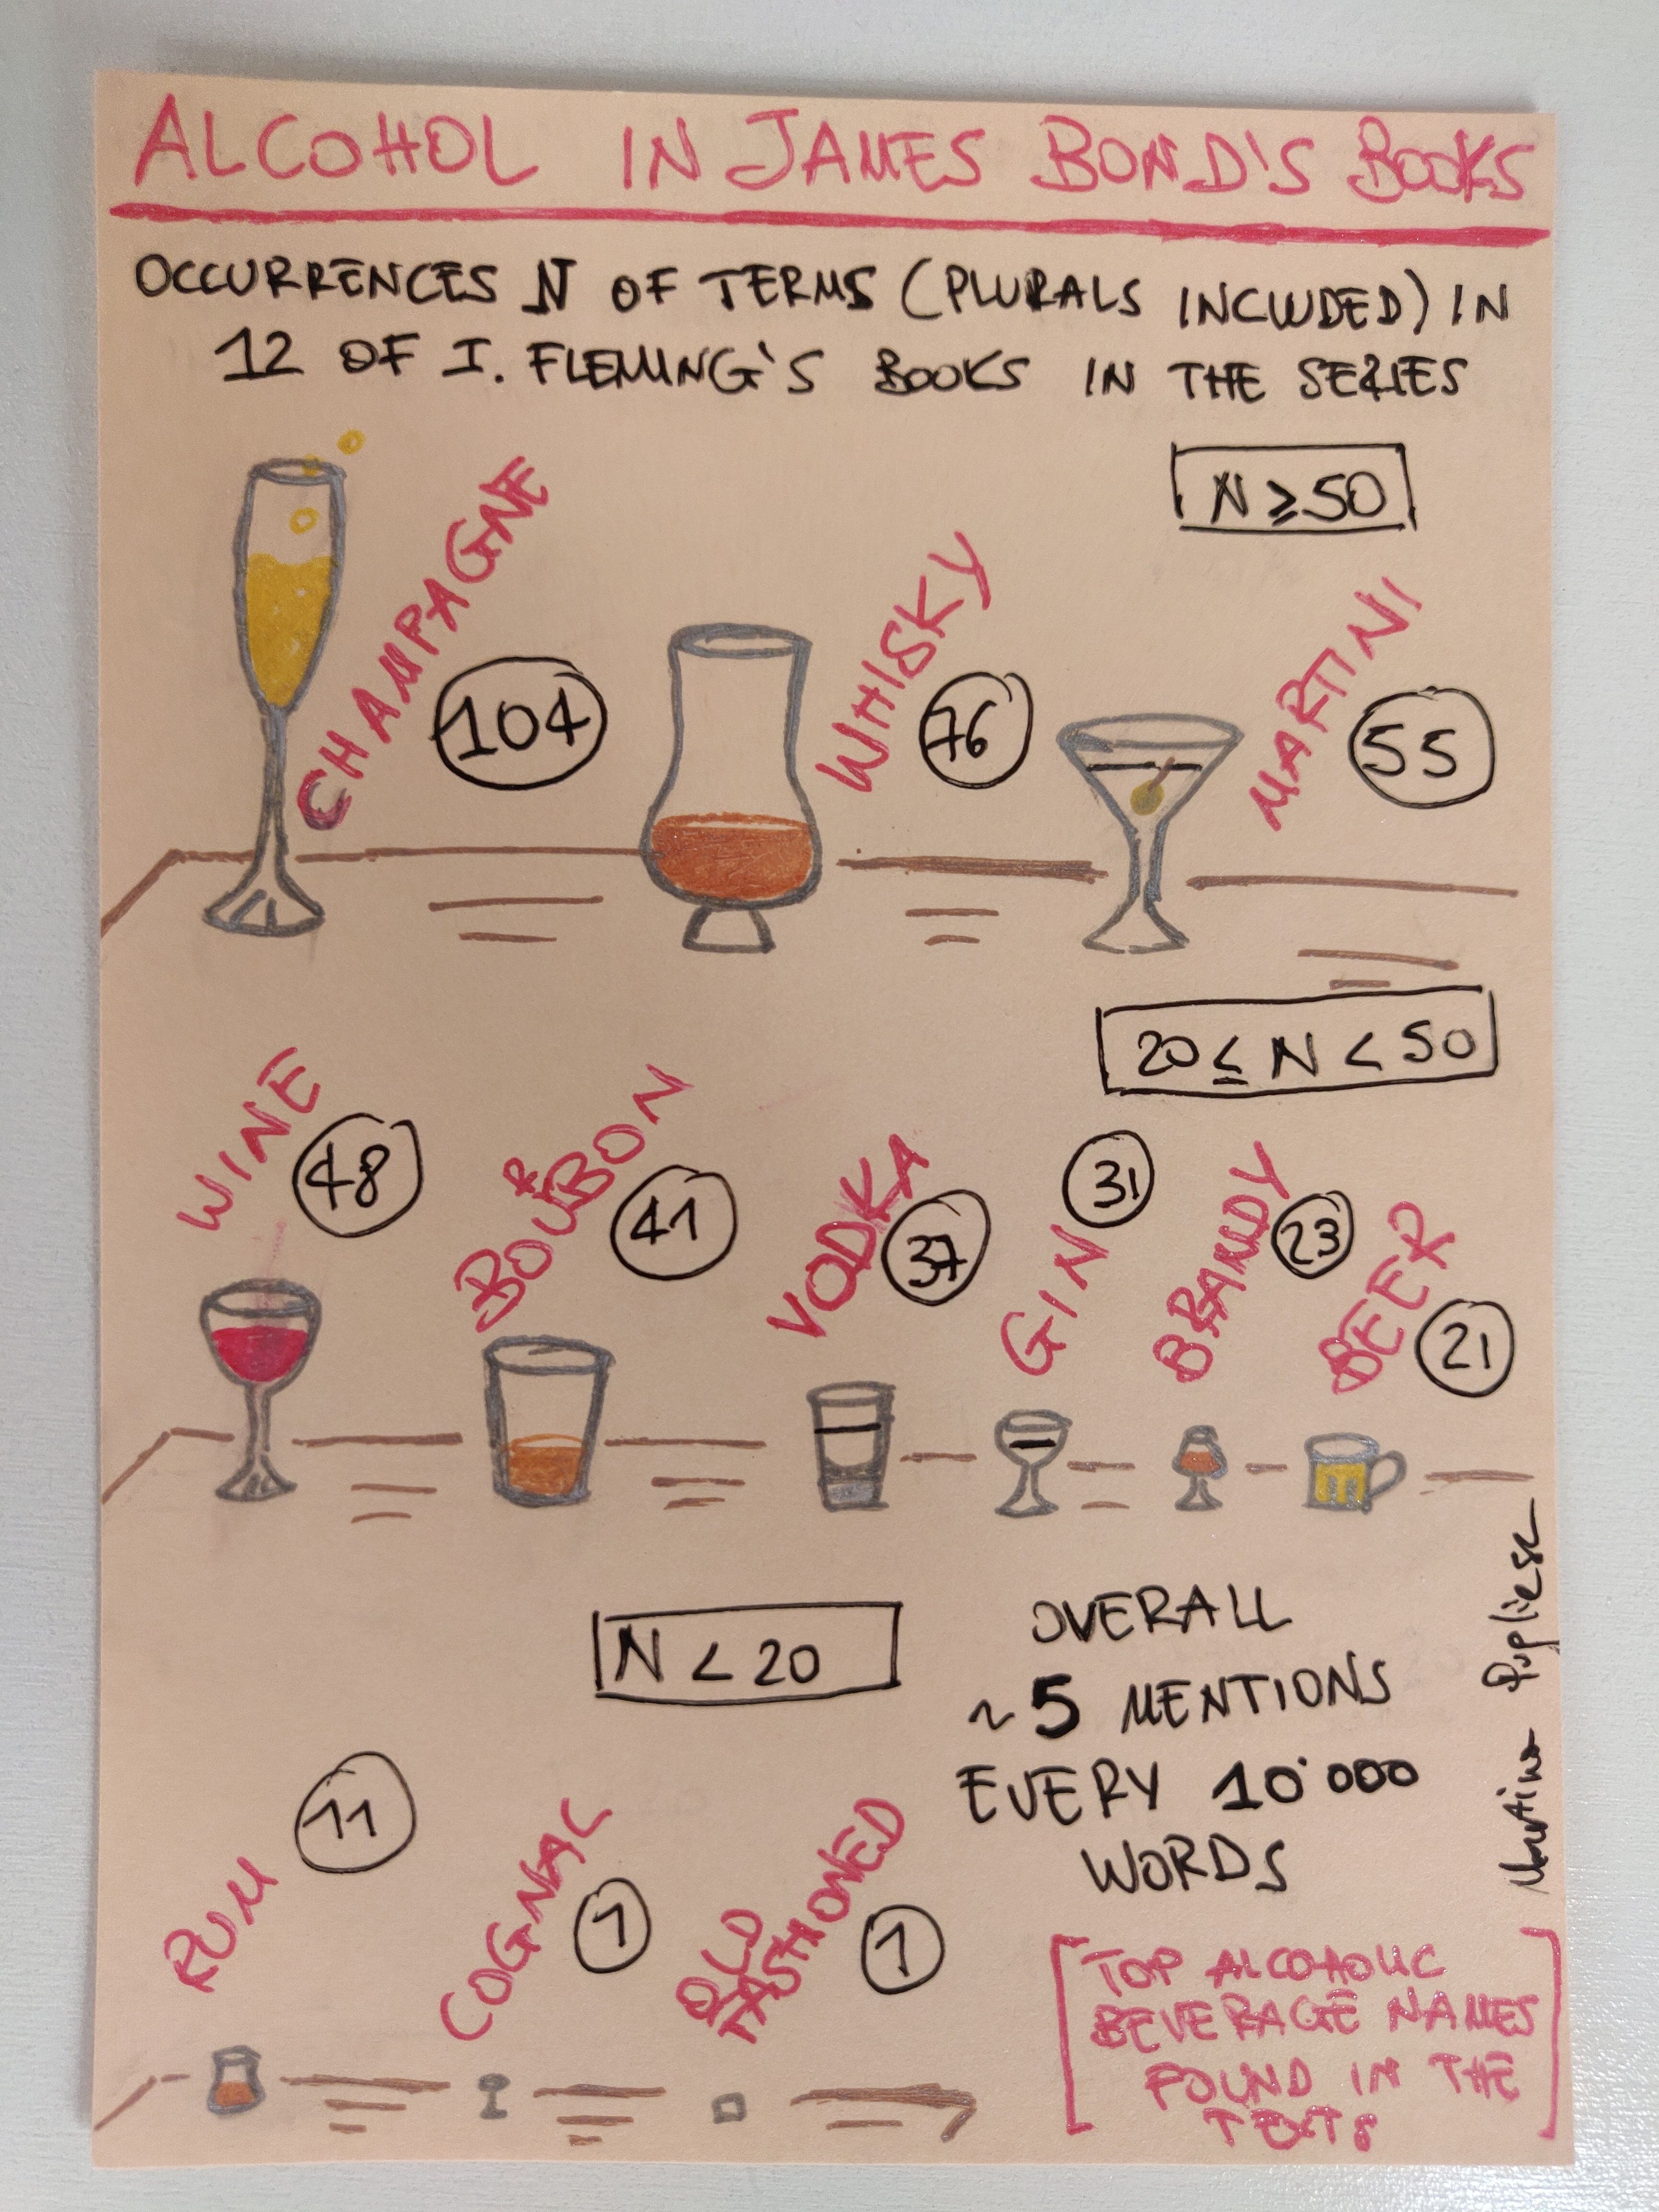 ALCOHOL IN JAMES BOND'S BOOKS
OCCURRENCES N OF TERMS (PLURALS INCLUDED) IN
12 OF I. FLEMING'S BOOKS IN THE SERIES
N ≥ 50
CHAMPAGNE
104
WHISKY
76
MARTINI
55
20 ≤ N < 50
WINE
48
BOURBON
41
VODKA
37
GIN
31
BRANDY
23
BEER
21
N < 20
RUM
11
COGNAC
1
OLD
FASHIONED
1
OVERALL
~5 MENTIONS
EVERY 10'000
WORDS
Martina Pugliese
[TOP ALCOHOLIC
BEVERAGE NAMES
FOUND IN THE
TEXTS]